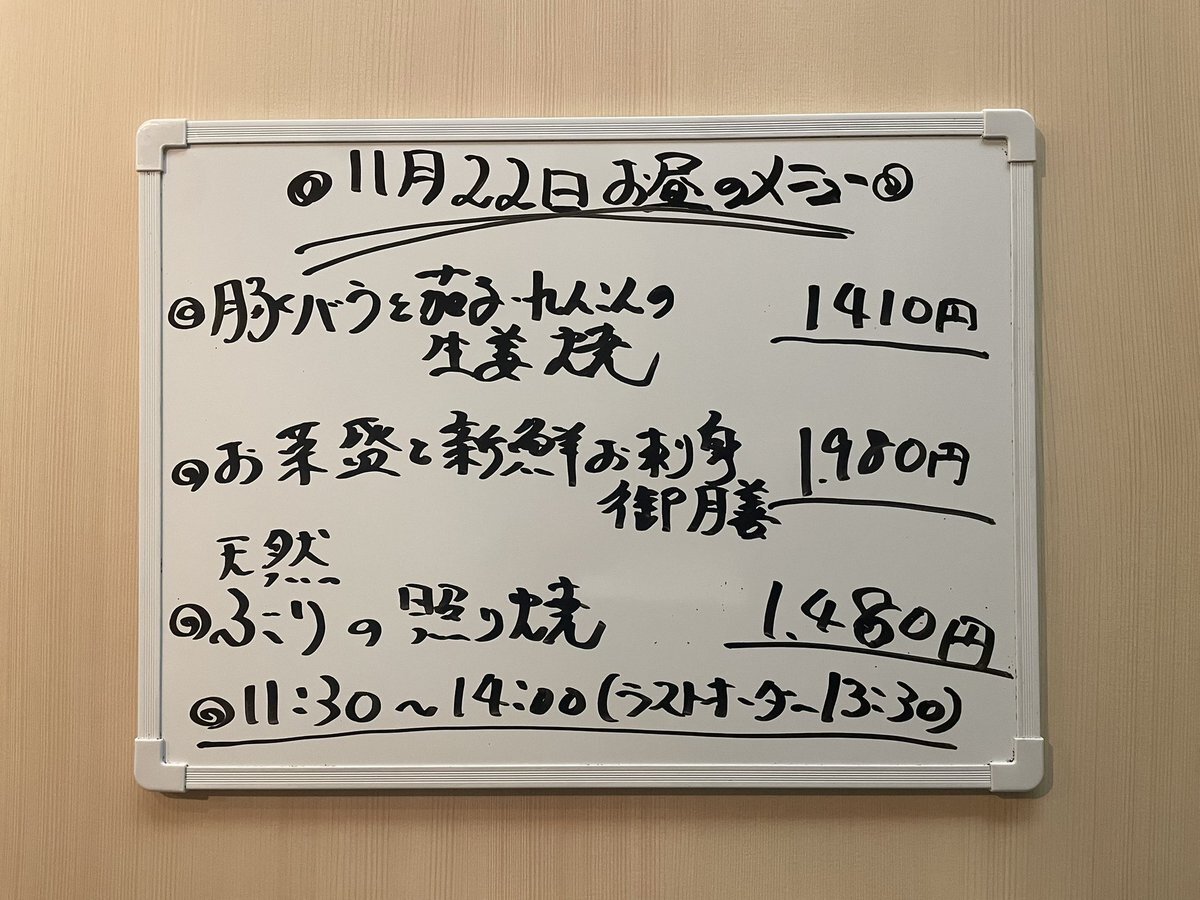 ◎11月22日お昼のメニュー◎
◎豚バラと茄子・れんこんの 1410円
生姜焼
◎お菜盛と新鮮お刺身 1.980円
御膳
天然
◎ぶりの照り焼 1.480円
◎11:30〜14:00(ラストオーダー13:30)